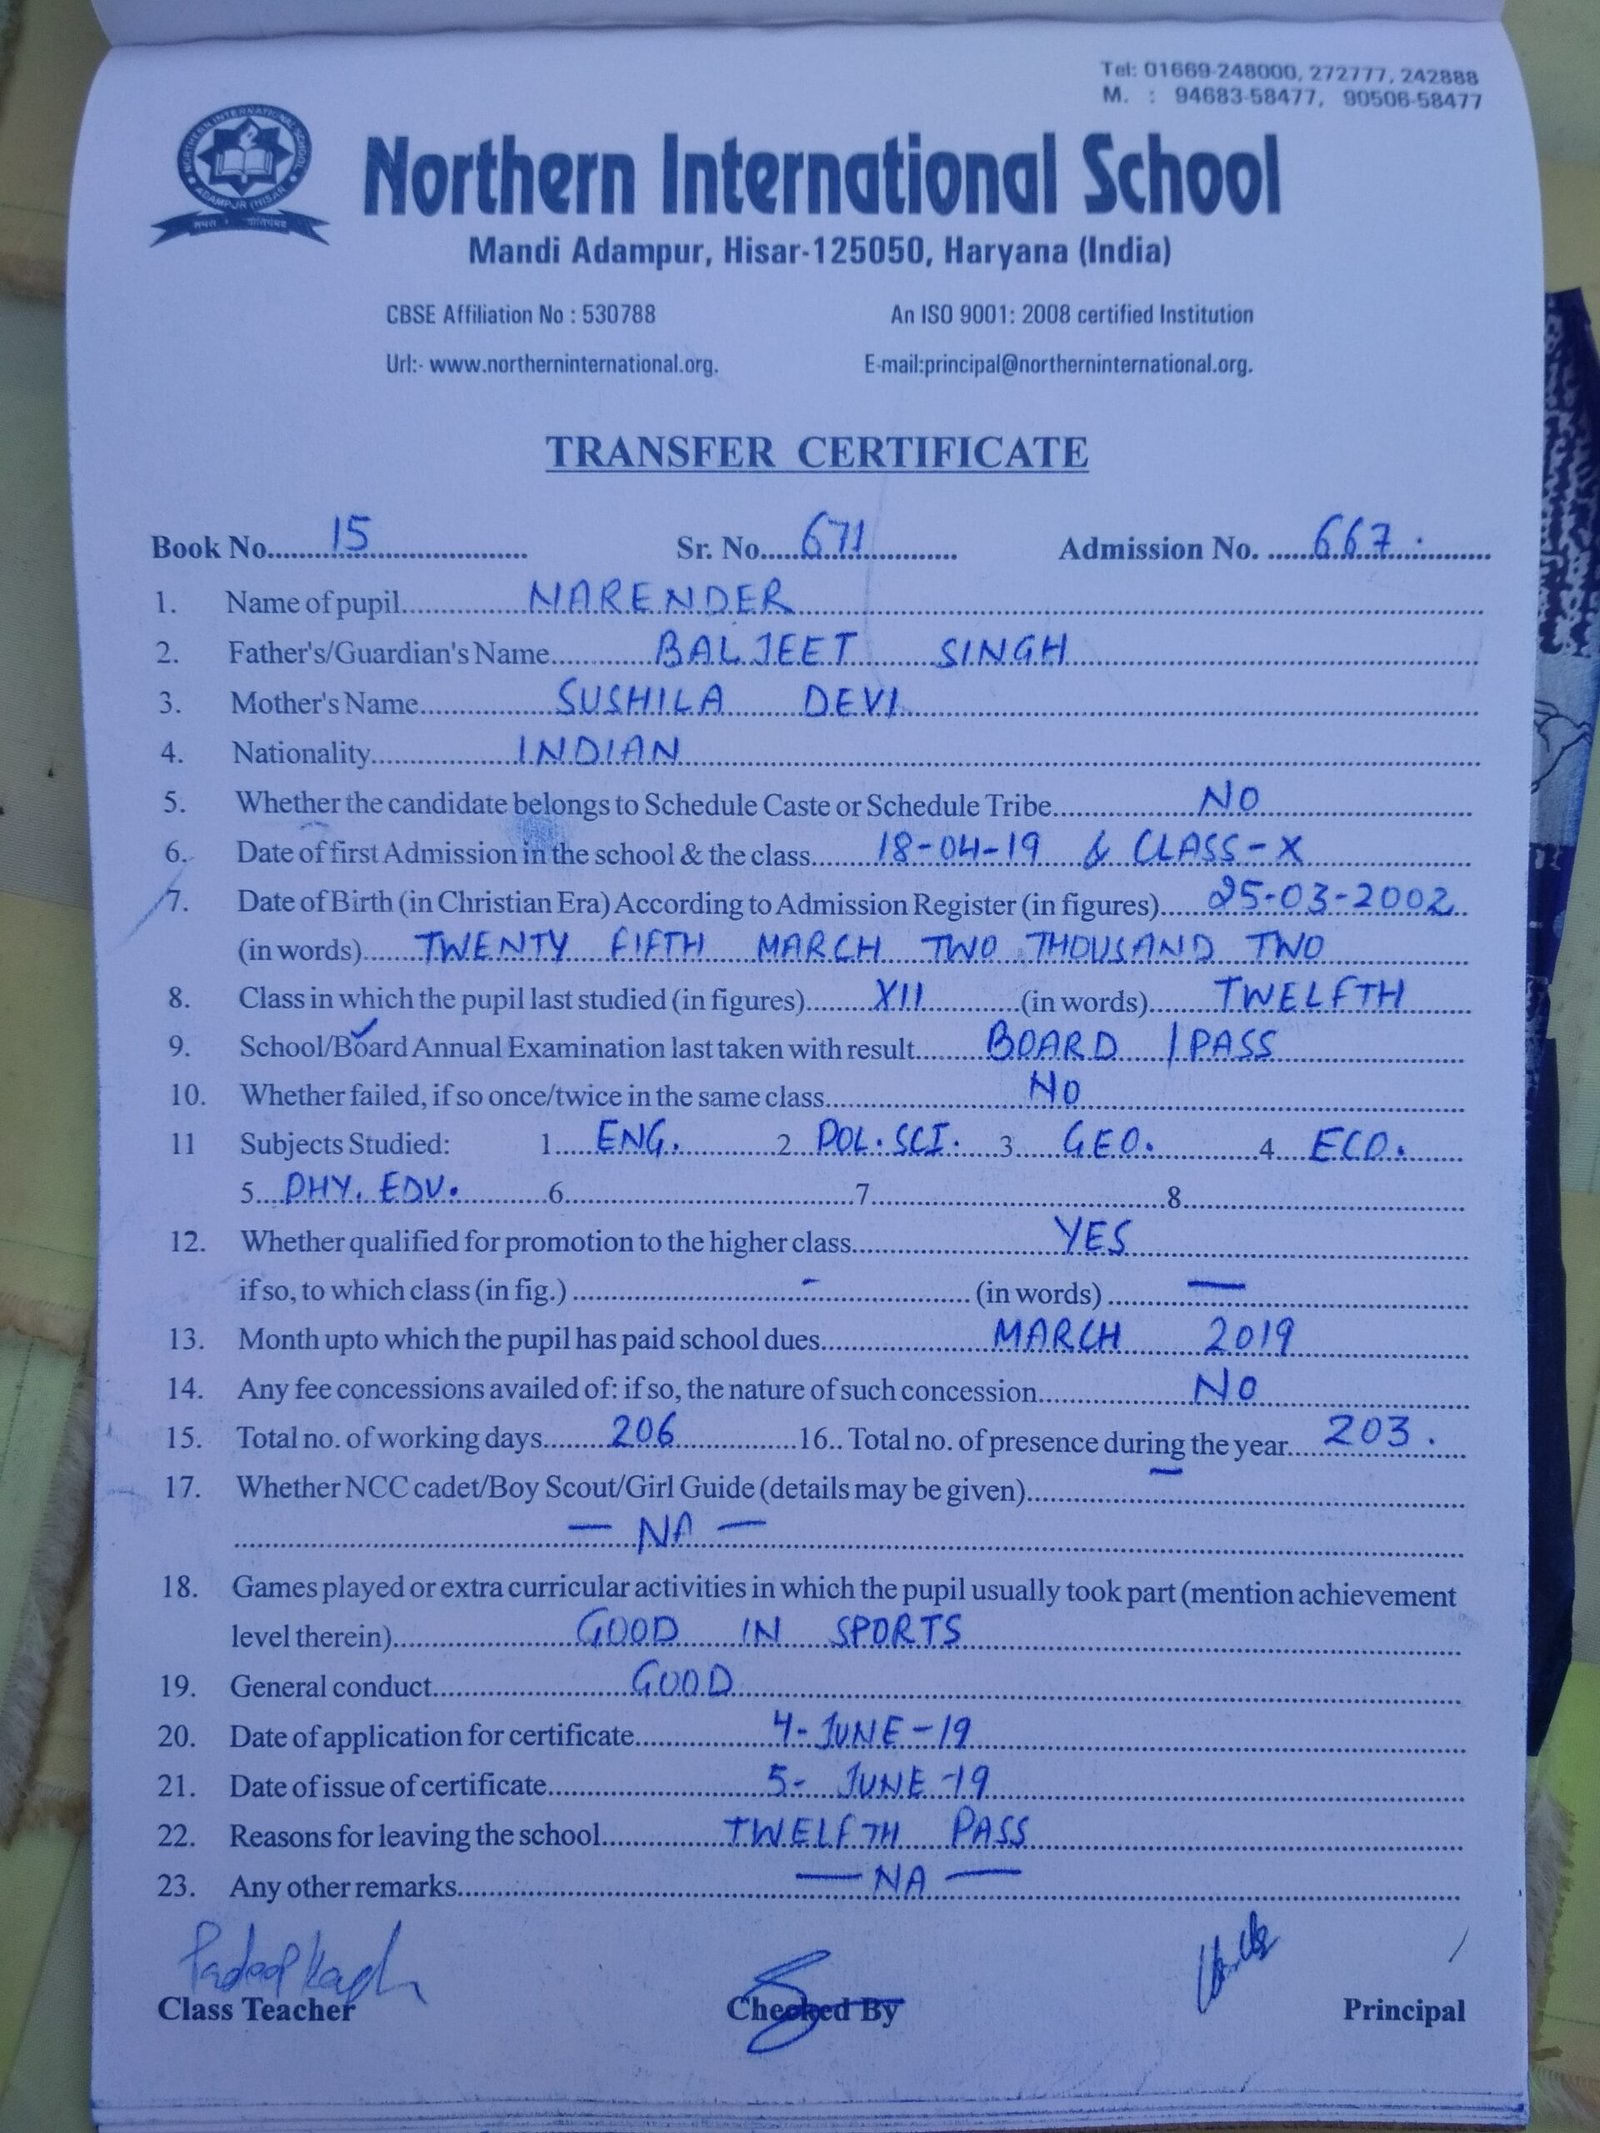 Tel: 01669-248000, 272777, 242888
M. : 94683-58477, 90506-58477
NORTHERN INTERNATIONAL SCHOOL
ADAMPUR (HISAR)
Northern International School
Mandi Adampur, Hisar-125050, Haryana (India)
CBSE Affiliation No : 530788 An ISO 9001: 2008 certified Institution
Url:- www.northerninternational.org. E-mail:principal@northerninternational.org.
TRANSFER CERTIFICATE
Book No. 15 Sr. No. 671 Admission No. 667.
1. Name of pupil NARENDER
2. Father's/Guardian's Name BALJEET SINGH
3. Mother's Name SUSHILA DEVI
4. Nationality INDIAN
5. Whether the candidate belongs to Schedule Caste or Schedule Tribe NO
6. Date of first Admission in the school & the class 18-04-19 & CLASS-X
7. Date of Birth (in Christian Era) According to Admission Register (in figures) 25-03-2002
(in words) TWENTY FIFTH MARCH TWO THOUSAND TWO
8. Class in which the pupil last studied (in figures) XII (in words) TWELFTH
9. School/Board Annual Examination last taken with result BOARD / PASS
10. Whether failed, if so once/twice in the same class NO
11 Subjects Studied: 1 ENG. 2 POL. SCI. 3 GEO. 4 ECO.
5 PHY. EDU. 6 7 8
12. Whether qualified for promotion to the higher class YES
if so, to which class (in fig.) - (in words) —
13. Month upto which the pupil has paid school dues MARCH 2019
14. Any fee concessions availed of: if so, the nature of such concession NO
15. Total no. of working days 206 16.. Total no. of presence during the year 203.
17. Whether NCC cadet/Boy Scout/Girl Guide (details may be given)
— NA —
18. Games played or extra curricular activities in which the pupil usually took part (mention achievement
level therein) GOOD IN SPORTS
19. General conduct GOOD
20. Date of application for certificate 4-JUNE-19
21. Date of issue of certificate 5-JUNE-19
22. Reasons for leaving the school TWELFTH PASS
23. Any other remarks — NA —
Class Teacher Checked By Principal